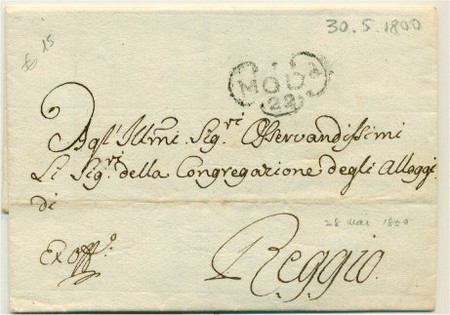 30.5.1800
£ 15
MOD.A
22
Agl' Illmi Sig.ri Osservandissimi
Li Sig.ri della Congregazione degli Alloggi
di
28 mai 1800
Ex Off.o
Reggio